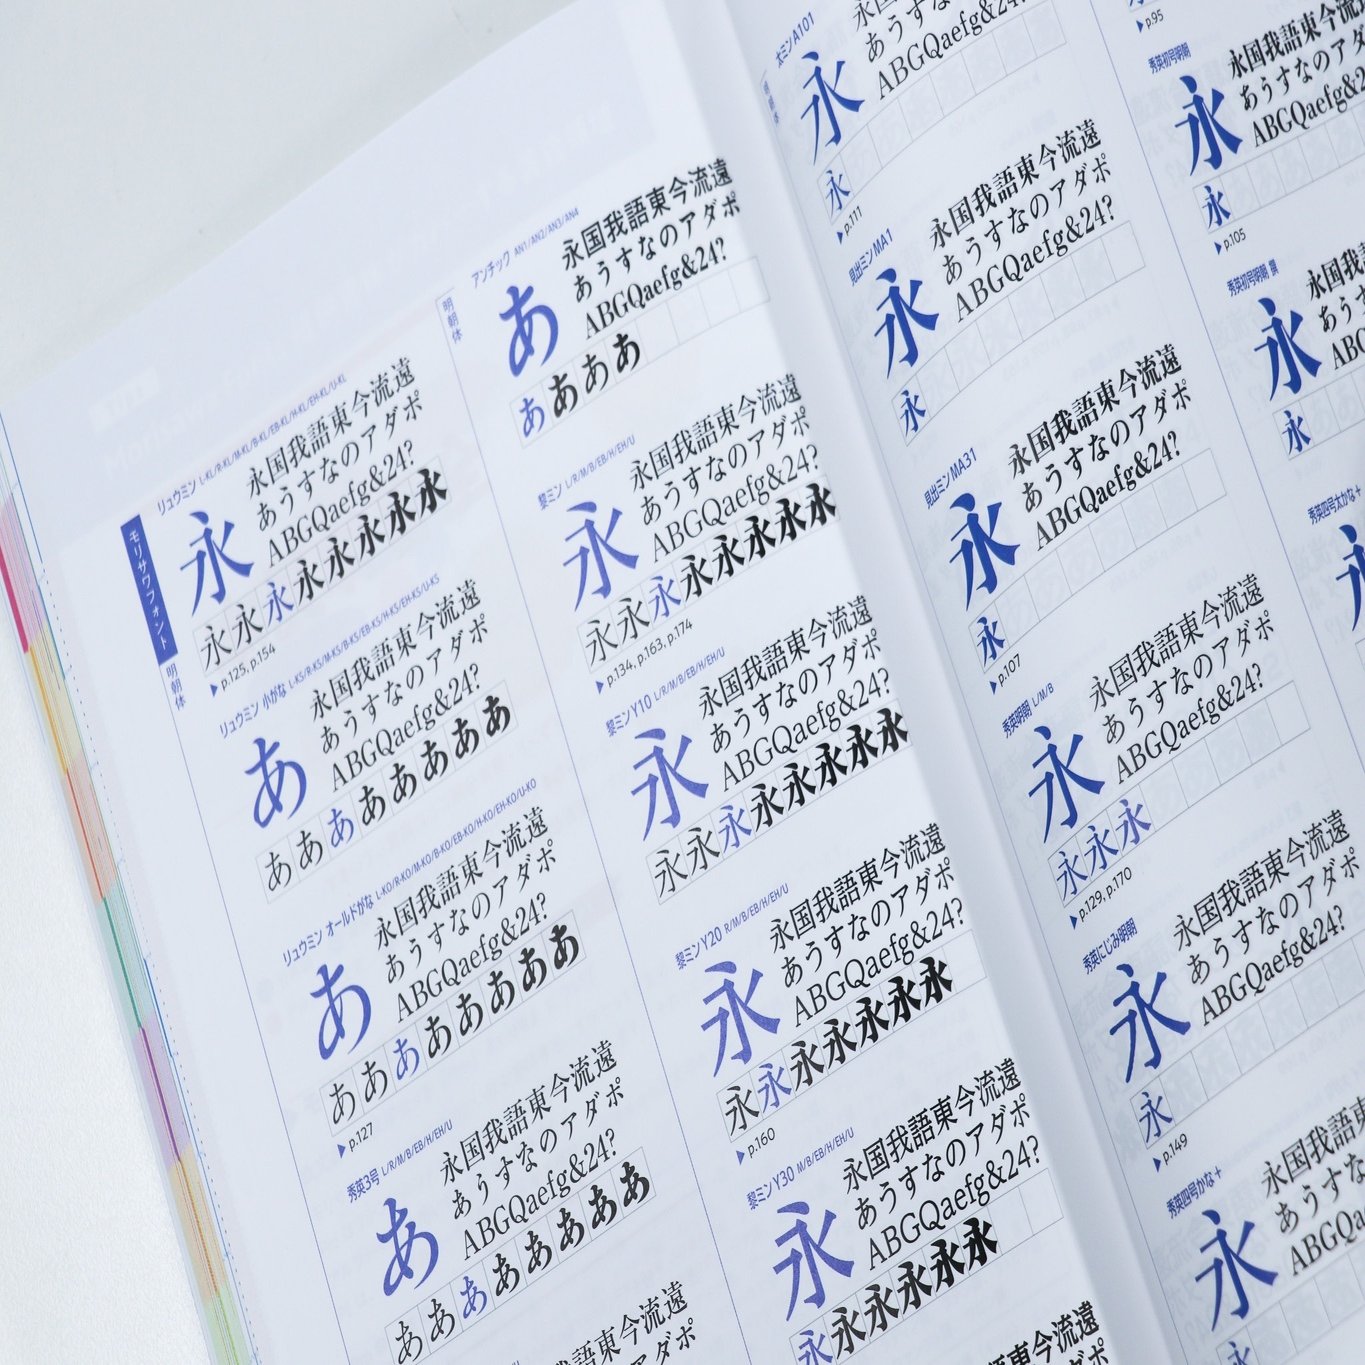 モリサワフォント
明朝体
リュウミン L-KL/R-KL/M-KL/B-KL/EB-KL/H-KL/EH-KL/U-KL
永
永国我語東今流遠
あうすなのアダポ
ABGQaefg&24?
永永永永永永永永
▶p.125, p.154
リュウミン 小がな L-KS/R-KS/M-KS/B-KS/EB-KS/H-KS/EH-KS/U-KS
あ
永国我語東今流遠
あうすなのアダポ
ABGQaefg&24?
ああああああああ
リュウミン オールドがな L-KO/R-KO/M-KO/B-KO/EB-KO/H-KO/EH-KO/U-KO
あ
永国我語東今流遠
あうすなのアダポ
ABGQaefg&24?
ああああああああ
▶p.127
秀英3号 L/R/M/B/EB/H/EH/U
あ
永国我語東今流遠
あうすなのアダポ
ABGQaefg&24?
ああああああああ
永国我語東今流遠
あうすなのアダポ
明朝体
アンチック AN1/AN2/AN3/AN4
あ
永国我語東今流遠
あうすなのアダポ
ABGQaefg&24?
ああああ
黎ミン L/R/M/B/EB/H/EH/U
永
永国我語東今流遠
あうすなのアダポ
ABGQaefg&24?
永永永永永永永永
▶p.134, p.163, p.174
黎ミンY10 L/R/M/B/EB/H/EH/U
永
永国我語東今流遠
あうすなのアダポ
ABGQaefg&24?
永永永永永永永永
黎ミンY20 R/M/B/EB/H/EH/U
永
永国我語東今流遠
あうすなのアダポ
ABGQaefg&24?
永永永永永永永
▶p.160
黎ミンY30 M/B/EB/H/EH/U
永
永国我語東今流遠
あうすなのアダポ
ABGQaefg&24?
永永永永永永
永国我語東今流遠
あうすなのアダポ
太ミンA101
永
あうすなのアダポ
ABGQaefg&24?
永
▶p.111
見出ミンMA1
永
永国我語東今流遠
あうすなのアダポ
ABGQaefg&24?
永
見出ミンMA31
永
永国我語東今流遠
あうすなのアダポ
ABGQaefg&24?
永
▶p.107
秀英明朝 L/M/B
永
永国我語東今流遠
あうすなのアダポ
ABGQaefg&24?
永永永
▶p.129, p.170
秀英にじみ明朝
永
永国我語東今流遠
あうすなのアダポ
ABGQaefg&24?
永
▶p.149
秀英四号かな+
永
永国我語東
あうすなの
ABGQa
▶p.95
秀英初号明朝
永
永国我語東今流
あうすなのアダ
ABGQaefg&2
永
▶p.105
秀英初号明朝 撰
永
永国我語
あうす
ABGQ
永
秀英四号太かな+